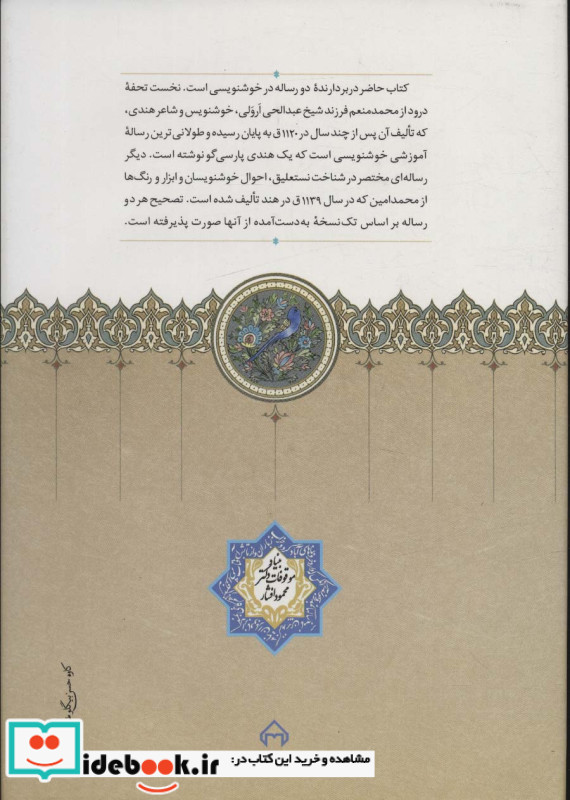 کتاب حاضر دربردارندهٔ دو رساله در خوشنویسی است. نخست تحفهٔ
درود از محمدمنعم فرزند شیخ عبدالحی اَرَوَلی، خوشنویس و شاعر هندی،
که تألیف آن پس از چند سال در ۱۱۲۰ق به پایان رسیده و طولانی‌ترین رسالهٔ
آموزشی خوشنویسی است که یک هندی پارسی‌گو نوشته است. دیگر
رساله‌ای مختصر در شناخت نستعلیق، احوال خوشنویسان و ابزار و رنگ‌ها
از محمدامین که در سال ۱۱۳۹ق در هند تألیف شده است. تصحیح هر دو
رساله بر اساس تک‌نسخهٔ به‌دست‌آمده از آنها صورت پذیرفته است.
بنیاد
موقوفات دکتر
محمود افشار
مشاهده و خرید این کتاب در:
idebook.ir